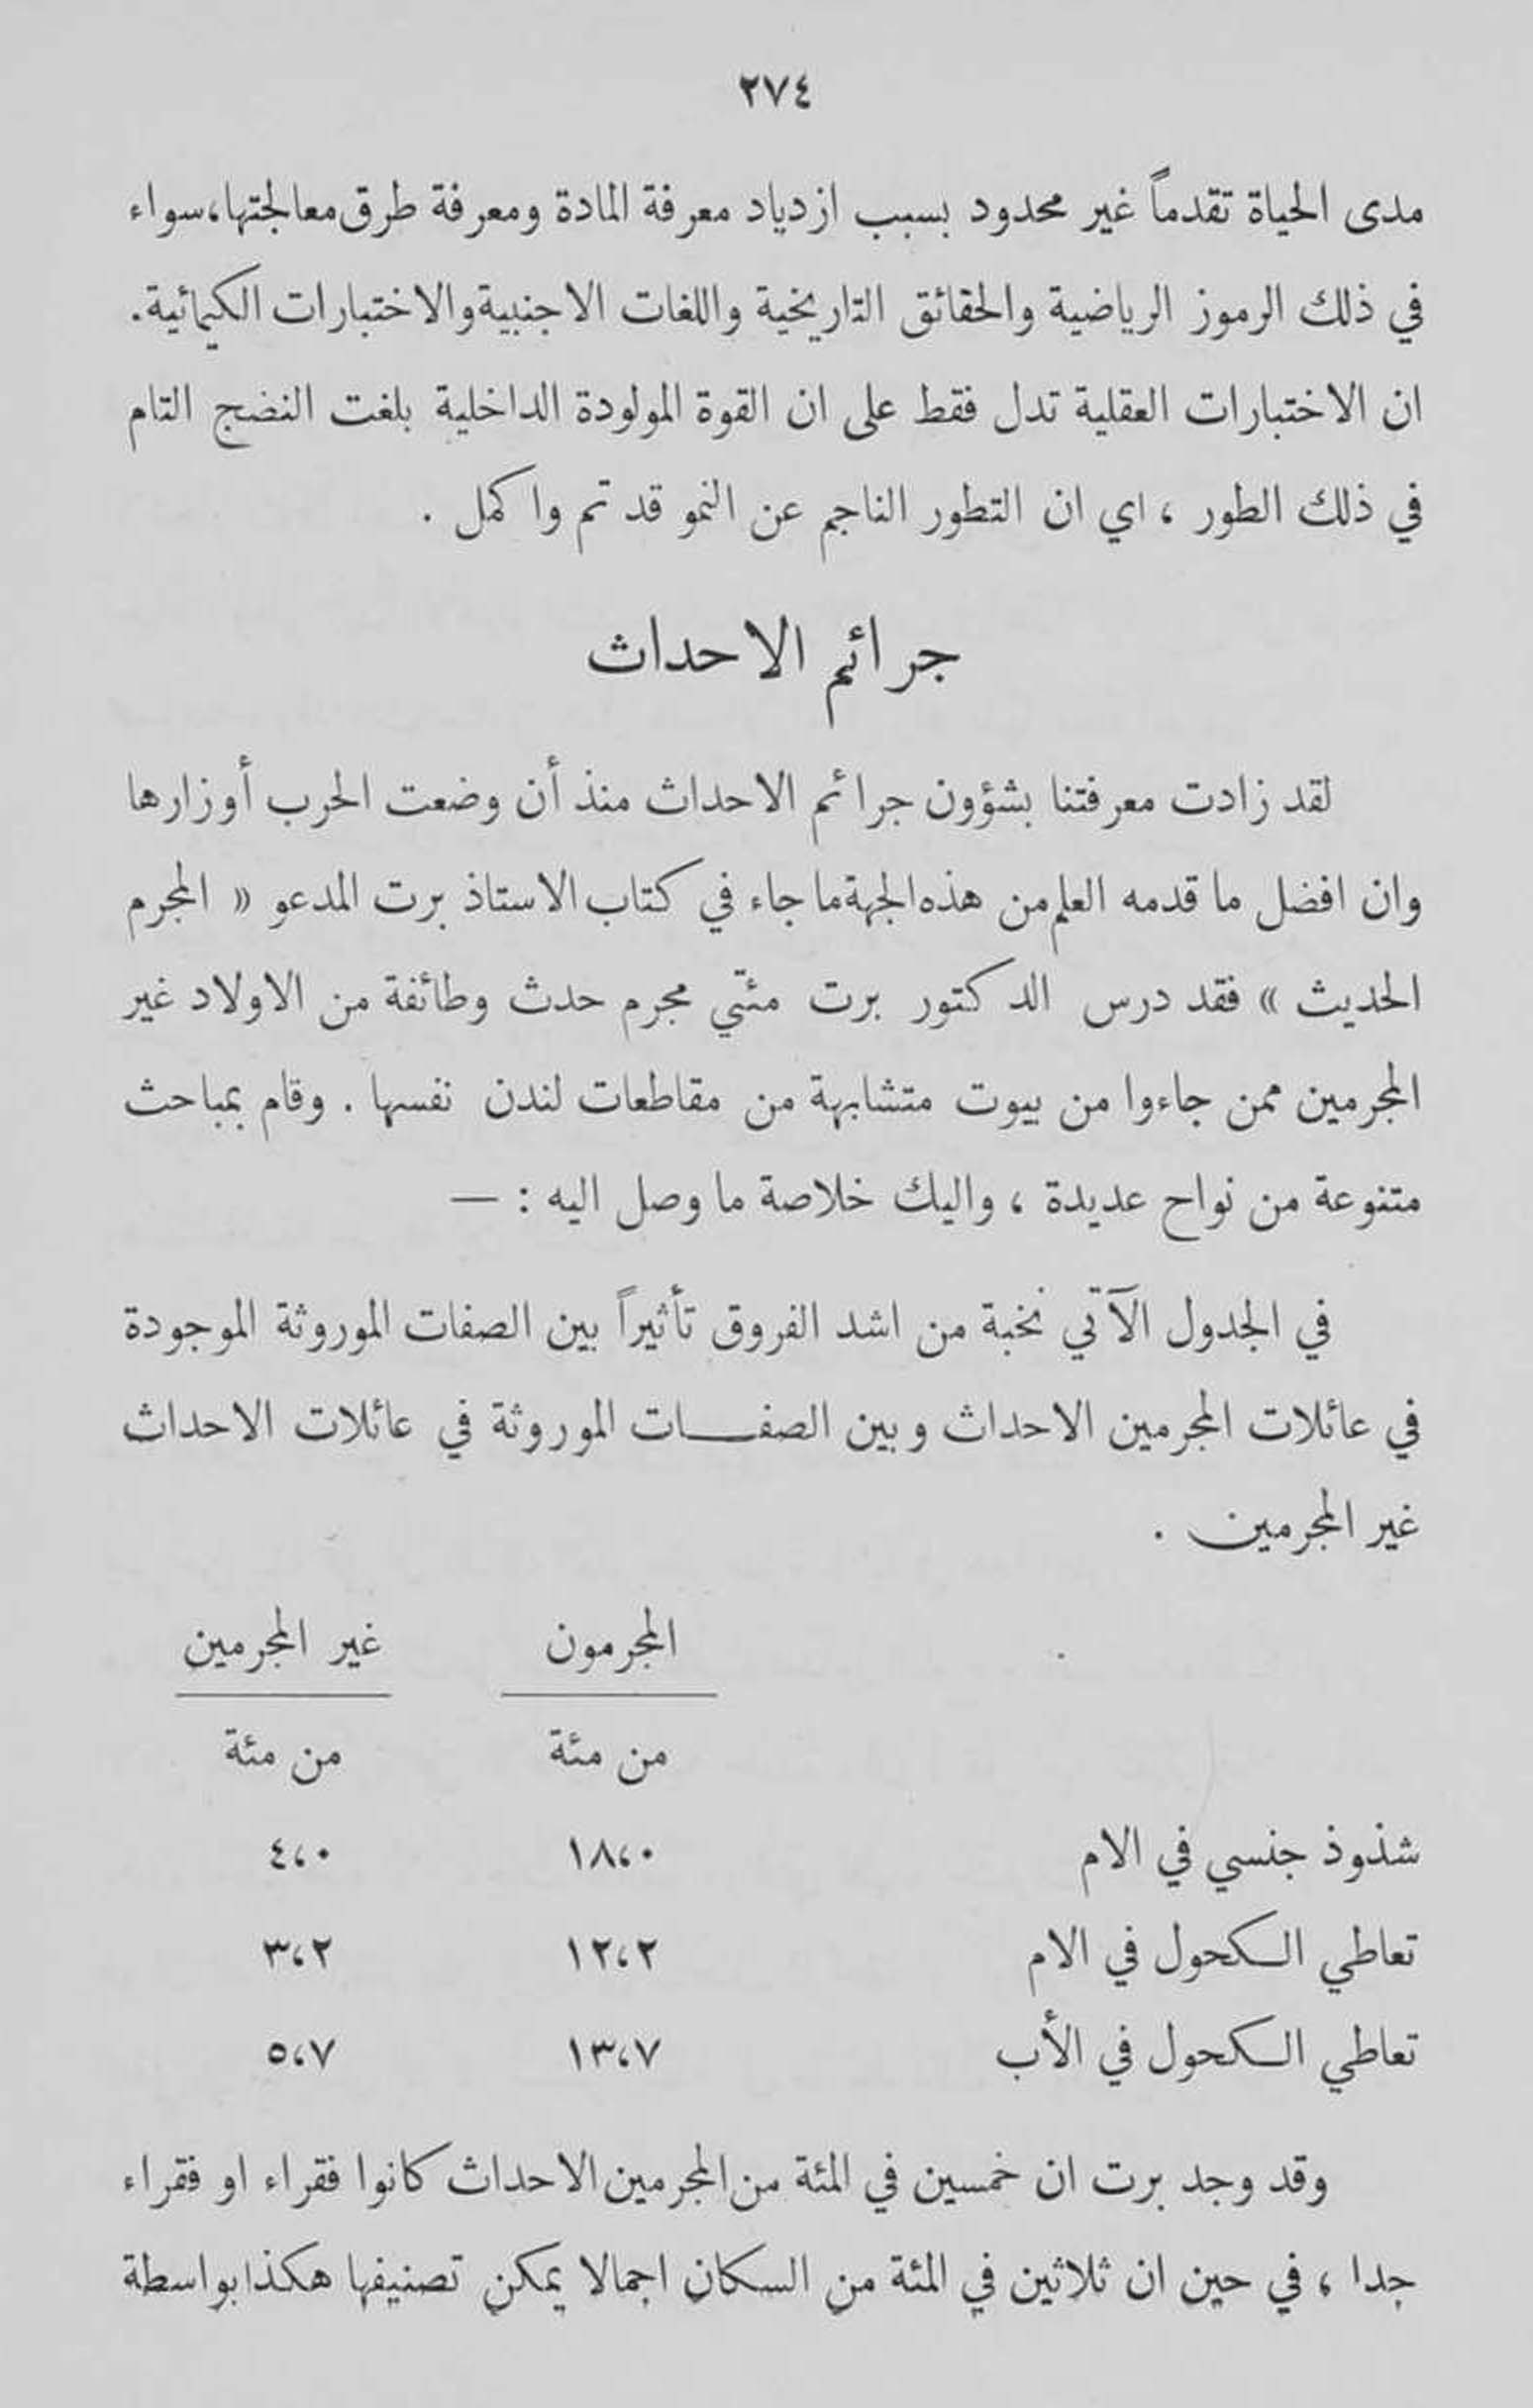 ٢٧٤
مدى الحياة تقدماً غير محدود بسبب ازدياد معرفة المادة ومعرفة طرق معالجتها، سواء
في ذلك الرموز الرياضية والحقائق التاريخية واللغات الاجنبية والاختبارات الكيمائية.
ان الاختبارات العقلية تدل فقط على ان القوة المولودة الداخلية بلغت النضج التام
في ذلك الطور ، اي ان التطور الناجم عن النمو قد تم واكمل .
جرائم الاحداث
لقد زادت معرفتنا بشؤون جرائم الاحداث منذ أن وضعت الحرب أوزارها
وان افضل ما قدمه العلم من هذه الجهة ما جاء في كتاب الاستاذ برت المدعو « المجرم
الحديث » فقد درس الدكتور برت مئتي مجرم حدث وطائفة من الاولاد غير
المجرمين ممن جاءوا من بيوت متشابهة من مقاطعات لندن نفسها . وقام بمباحث
متنوعة من نواح عديدة ، واليك خلاصة ما وصل اليه : —
في الجدول الآتي نخبة من اشد الفروق تأثيراً بين الصفات الموروثة الموجودة
في عائلات المجرمين الاحداث وبين الصفـــات الموروثة في عائلات الاحداث
غير المجرمين .
المجرمون غير المجرمين
من مئة من مئة
شذوذ جنسي في الام ١٨،٠ ٤،٠
تعاطي الكحول في الام ١٢،٢ ٣،٢
تعاطي الكحول في الأب ١٣،٧ ٥،٧
وقد وجد برت ان خمسين في المئة من المجرمين الاحداث كانوا فقراء او فقراء
جدا ، في حين ان ثلاثين في المئة من السكان اجمالا يمكن تصنيفها هكذا بواسطة